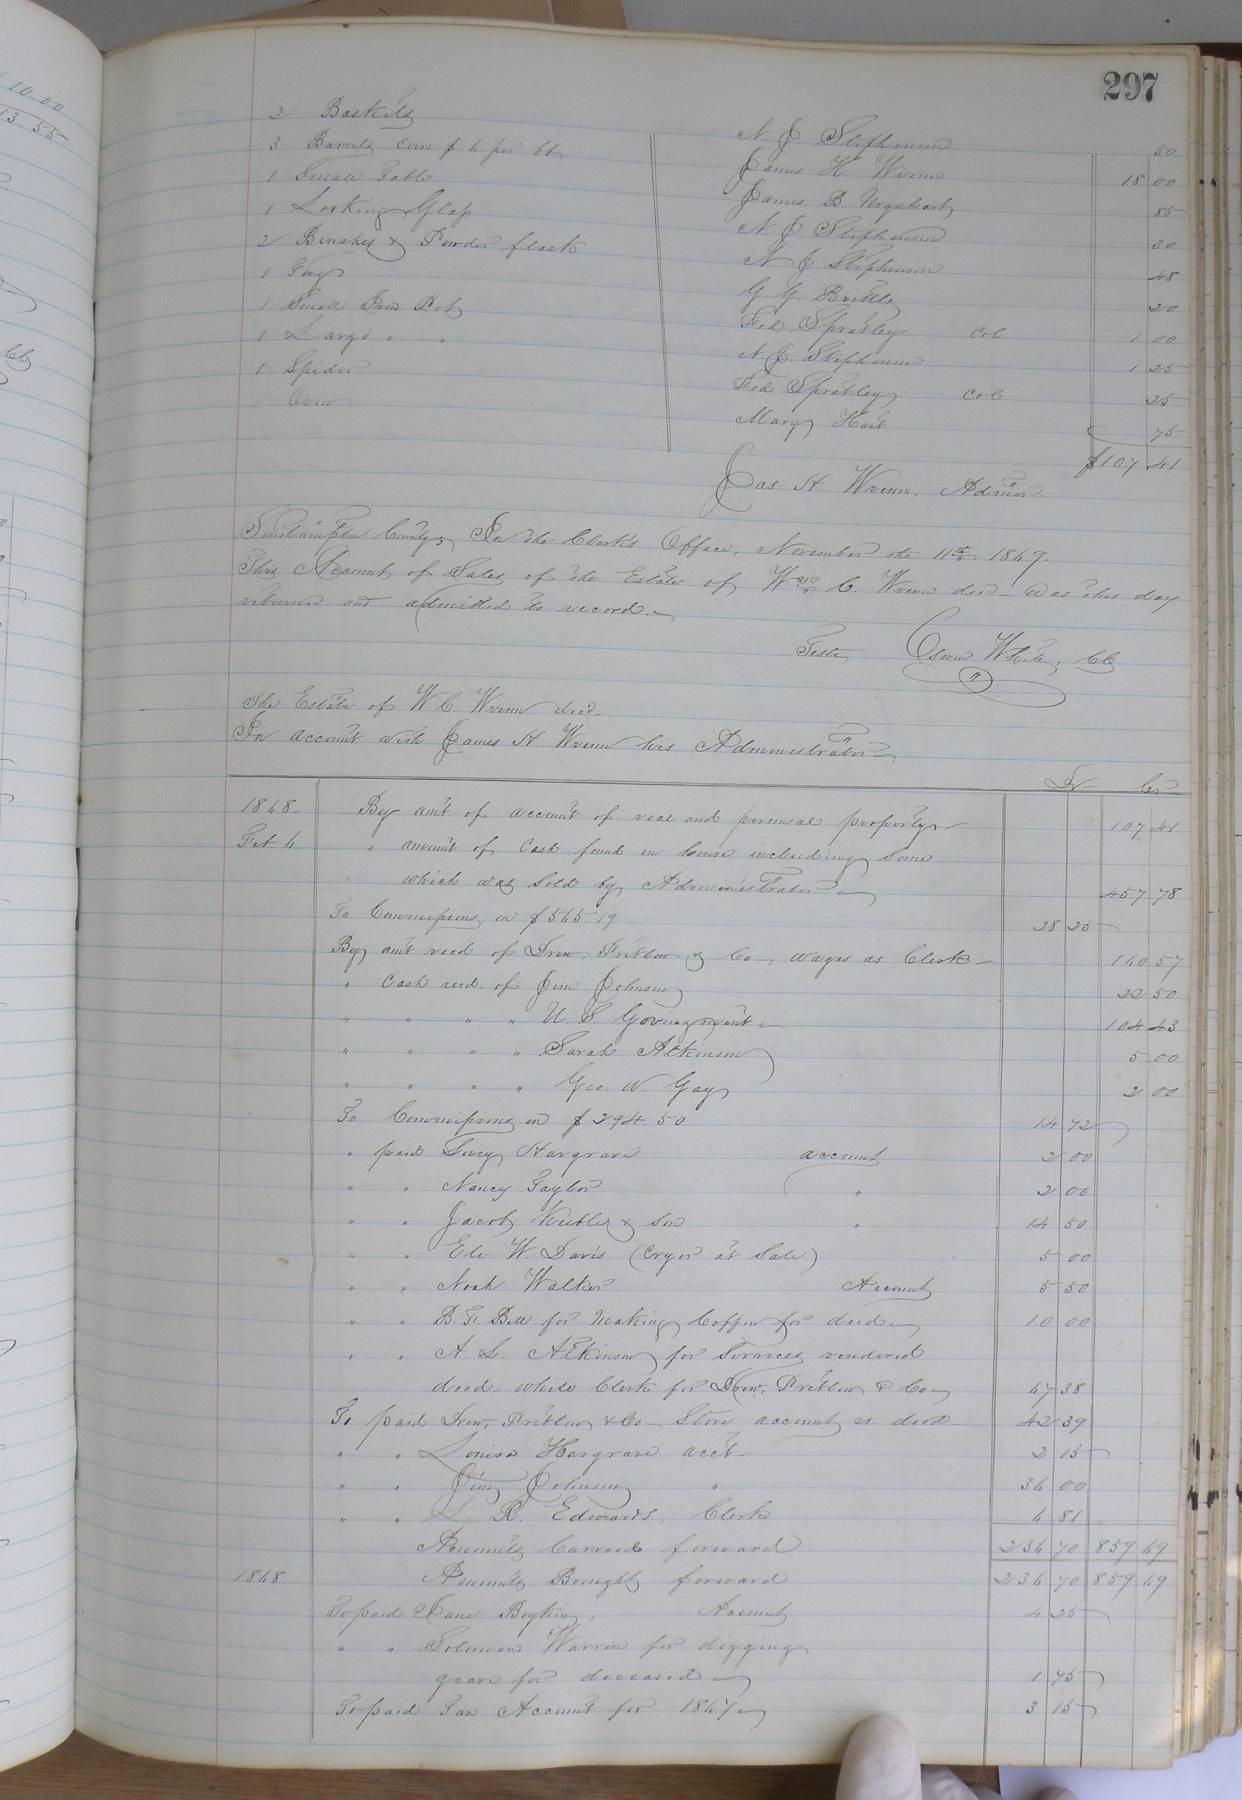 10.00
13.55
297
2 Baskets N J Stephenson 50
3 Barrels Corn $ 6 per bb James H Wrenn 18 00
1 Small Table James B Urquhart 85
1 Looking Glass N J Stephenson 30
2 & Powder flask N J Stephenson 48
1 G G. Brittle 20
1 Small Iron Pot Fed Spratley Col 1 00
1 Large " " N J Stephenson 1 25
1 Spider Fed Spratley Col 25
1 Oven Mary Hart 75
$107 41
Jas. H. Wrenn, Admor
Southampton County, In the Clerk's Office, November the 11th 1869.
This Account of Sales of the Estate of Wm C. Wrenn decd was this day
returned and admitted to record.
Teste White, CC
The Estate of W C Wrenn decd
In account with James H. Wrenn his Administrator
Dr Cr
1868. By amt of account of real and personal property 107 41
Feb 6. " amount of Cash found in house including some
which was sold by Administrator 457 78
To Commissions on $565 19 28 25
By amt recd of Drew, Pretlow & Co, wages as Clerk 160 57
" Cash recd. of Jim Johnson 22 50
" " " " U. S. Government 104 43
" " " " Sarah Atkinson 5 00
" " " " Geo. W. Gay 2 00
To Commissions on $ 294.50 14 72
" paid Lucy Hargrave account 2 00
" " Nancy Taylor " 2 00
" " Jacob & Son " 14 50
" " Eli W. Davis (Cryer at Sale) 5 00
" " Noah Walker Account 5 50
" " B. F. Bell for Making Coffin for decd 10 00
" " A. L. Atkinson for Services rendered
decd while Clerk for Drew, Pretlow & Co 67 38
To paid Drew, Pretlow & Co Store account vs decd 42 39
" " Louisa Hargrave acct 2 15
" " Jim Johnson " 36 00
" " L. R. Edwards, Clerk 6 81
Amounts Carried forward 236 70 859 69
1868. Amounts Brought forward 236 70 859 69
To paid Jane Boykin, Account 4 25
" " Soloman Warren for digging
grave for deceased 1 75
To paid Tax Account for 1867 3 15